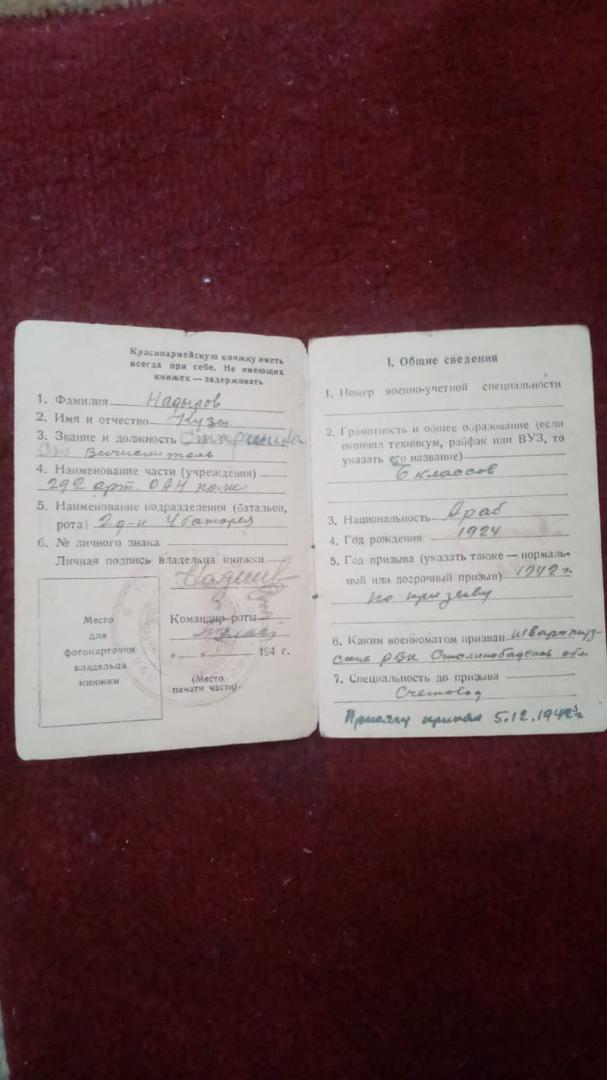 Красноармейскую книжку иметь
всегда при себе. Не имеющих
книжек — задерживать
1. Фамилия Надыров
2. Имя и отчество Кузы
3. Звание и должность Старшина
ст. Вычислитель
4. Наименование части (учреждения)
292 арт. полк
5. Наименование подразделения (батальон,
рота) 2 д-н 4 батарея
6. № личного знака
Личная подпись владельца книжки
Командир роты
„ „ 194 г.
(Место
печати части)
Место
для
фотокарточки
владельца
книжки
I. Общие сведения
1. Номер военно-учетной специальности
2. Грамотность и общее образование (если
окончил техникум, рабфак или ВУЗ, то
указать его название)
6 классов
3. Национальность Араб
4. Год рождения 1924
5. Год призыва (указать также — нормаль-
ный или досрочный призыв) 1942 г.
по призыву
6. Каким военкоматом призван
ским РВК Сталинабадской обл.
7. Специальность до призыва
Счетовод
Присягу принял 5.12.1942 г.